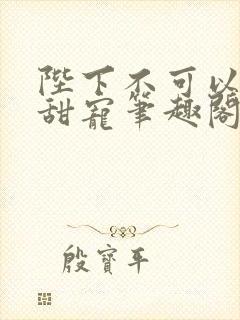 陛下不可以
甜寵筆趣閣
殷寶平